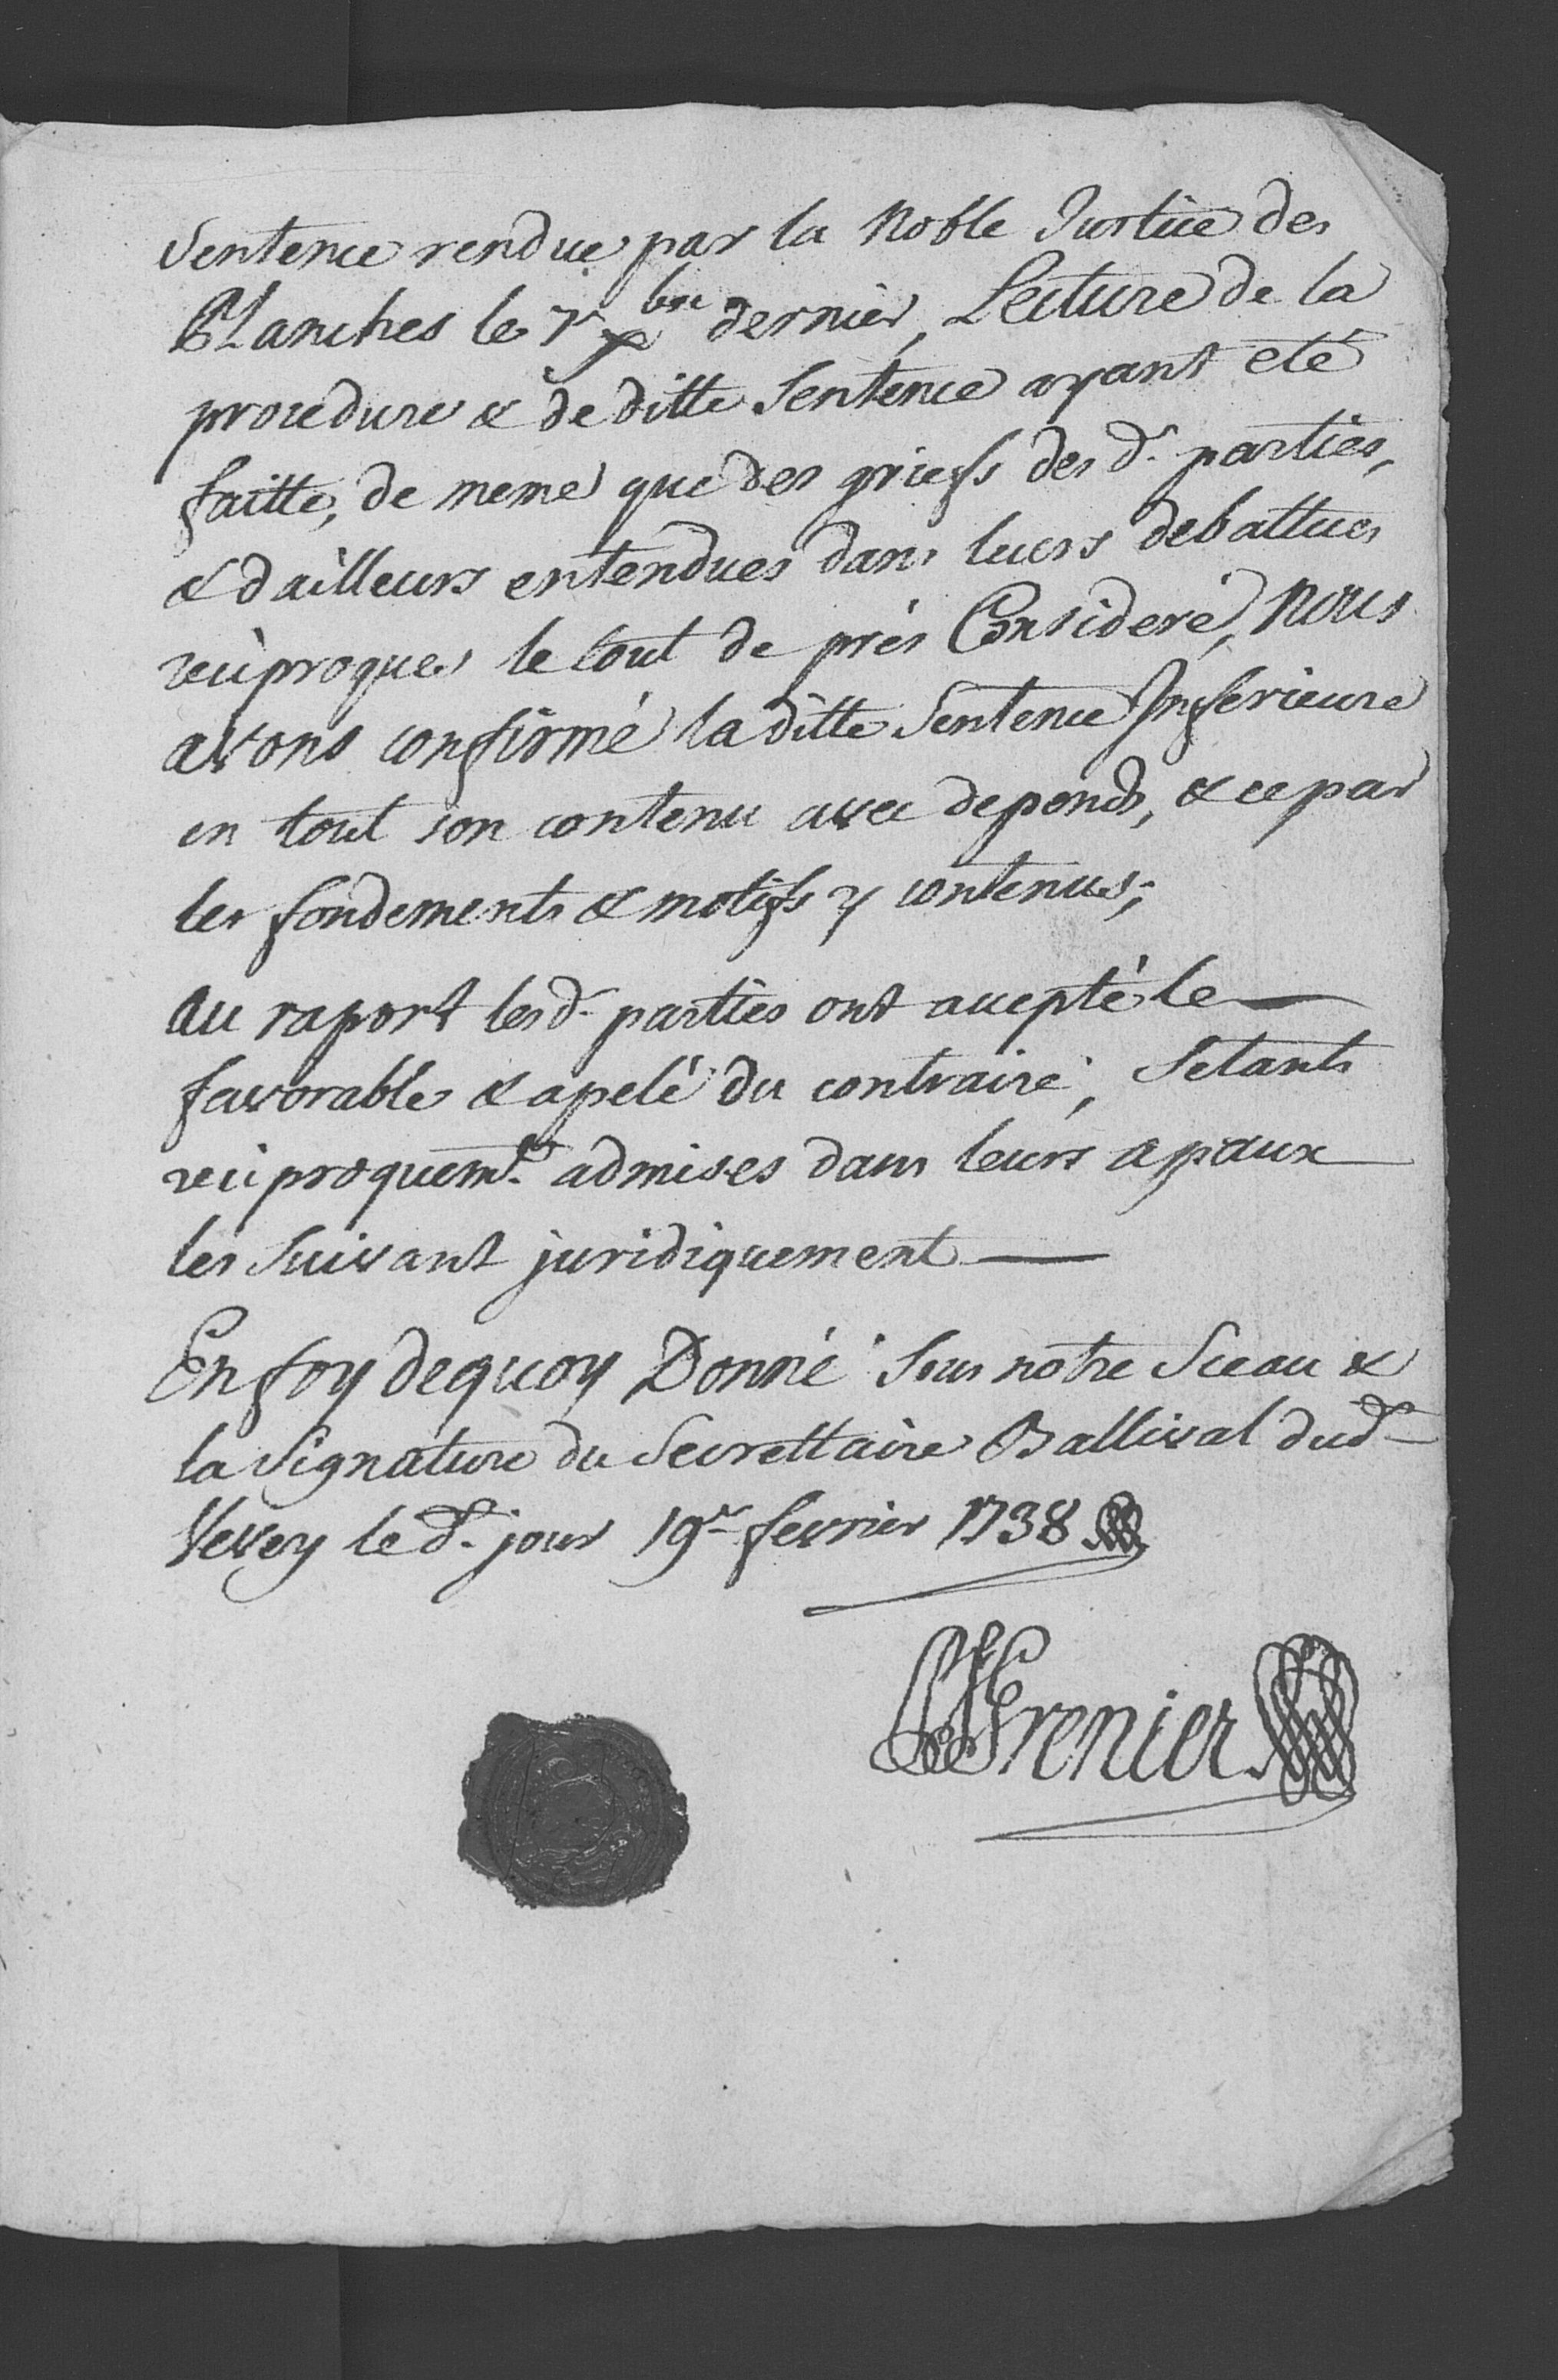 Sentence rendue par la Noble Justice des
Planches le 7e xbre dernier, Lecture de la
procedure & de ditte Sentence ayant eté
faitte, de meme que des griefs des d. parties,
& dailleurs entendues dans leurs debattues
reciproques le tout de prés Consideré, Nous
avons confirmé la ditte Sentence Inferieure
en tout son contenu avec depends, & ce par
les fondements & motifs y contenus;
Au raport lesd. parties ont accepté le
favorable & apelé du contraire, Setants
reciproquemt. admises dans leurs apaux
les Suivant juridiquement
En foy dequoy Donné Sous notre Sceau &
la Signature du Secrettaire Ballival dud.
Vevey le d. jour 19e fevrier 1738
Grenier